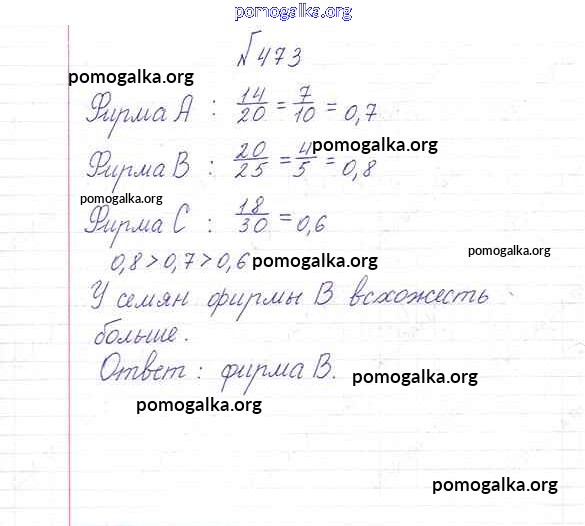 pomogalka.org
№473
pomogalka.org
Фирма А : 14/20 = 7/10 = 0,7
pomogalka.org
Фирма В : 20/25 = 4/5 = 0,8
pomogalka.org
Фирма С : 18/30 = 0,6
pomogalka.org
0,8 > 0,7 > 0,6 pomogalka.org
У семян фирмы В всхожесть
больше.
Ответ : фирма В. pomogalka.org
pomogalka.org
pomogalka.org